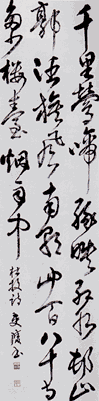 千里鶯啼綠映紅水村山
郭酒旗風南朝四百八十寺
多少樓臺烟雨中
杜牧诗